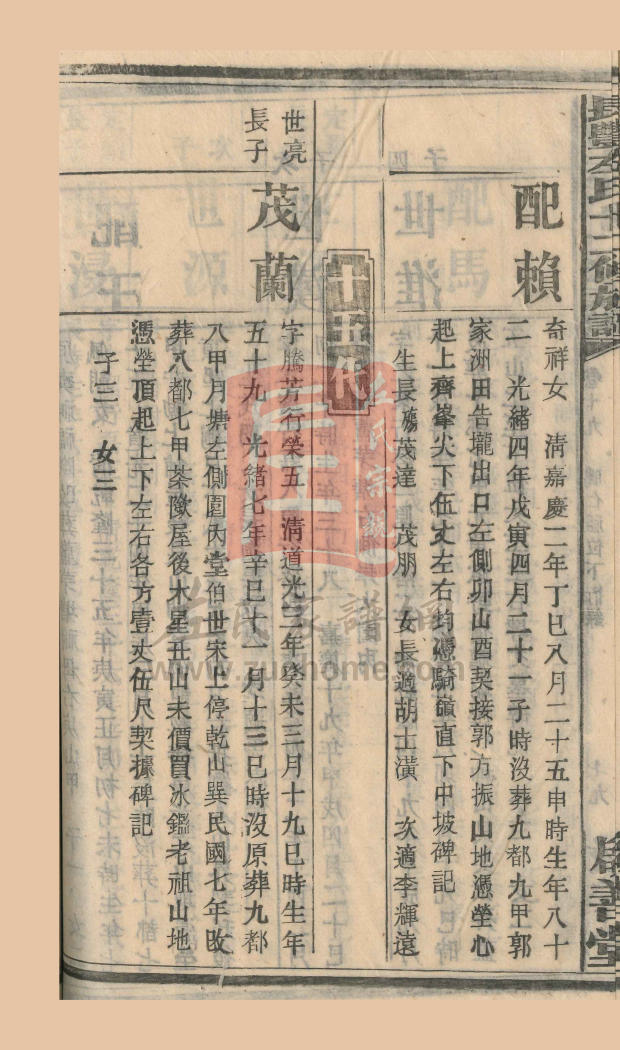 配賴
奇祥女　清嘉慶二年丁巳八月二十五申時生年八十
二　光緒四年戊寅四月二十一子時沒葬九都九甲郭
家洲田告壠出口左側卯山酉契接郭方振山地憑塋心
起上齊峯尖下伍丈左右均憑騎嶺直下中坡碑記
生長殤茂達　茂朋　女長適胡士潢　次適李輝遠
世亮
長子
茂蘭
字騰芳行榮五八清道光三年癸未三月十九巳時生年
五十九　光緒七年辛巳十一月十三巳時沒原葬九都
八甲月塘左側圍內堂伯世宋上停乾山巽民國七年改
葬八都七甲茶隞屋後木星丑山未價買冰鑑老祖山地
憑塋頂起上下左右各方壹丈伍尺契據碑記
子三　女三
www.zuohome.com